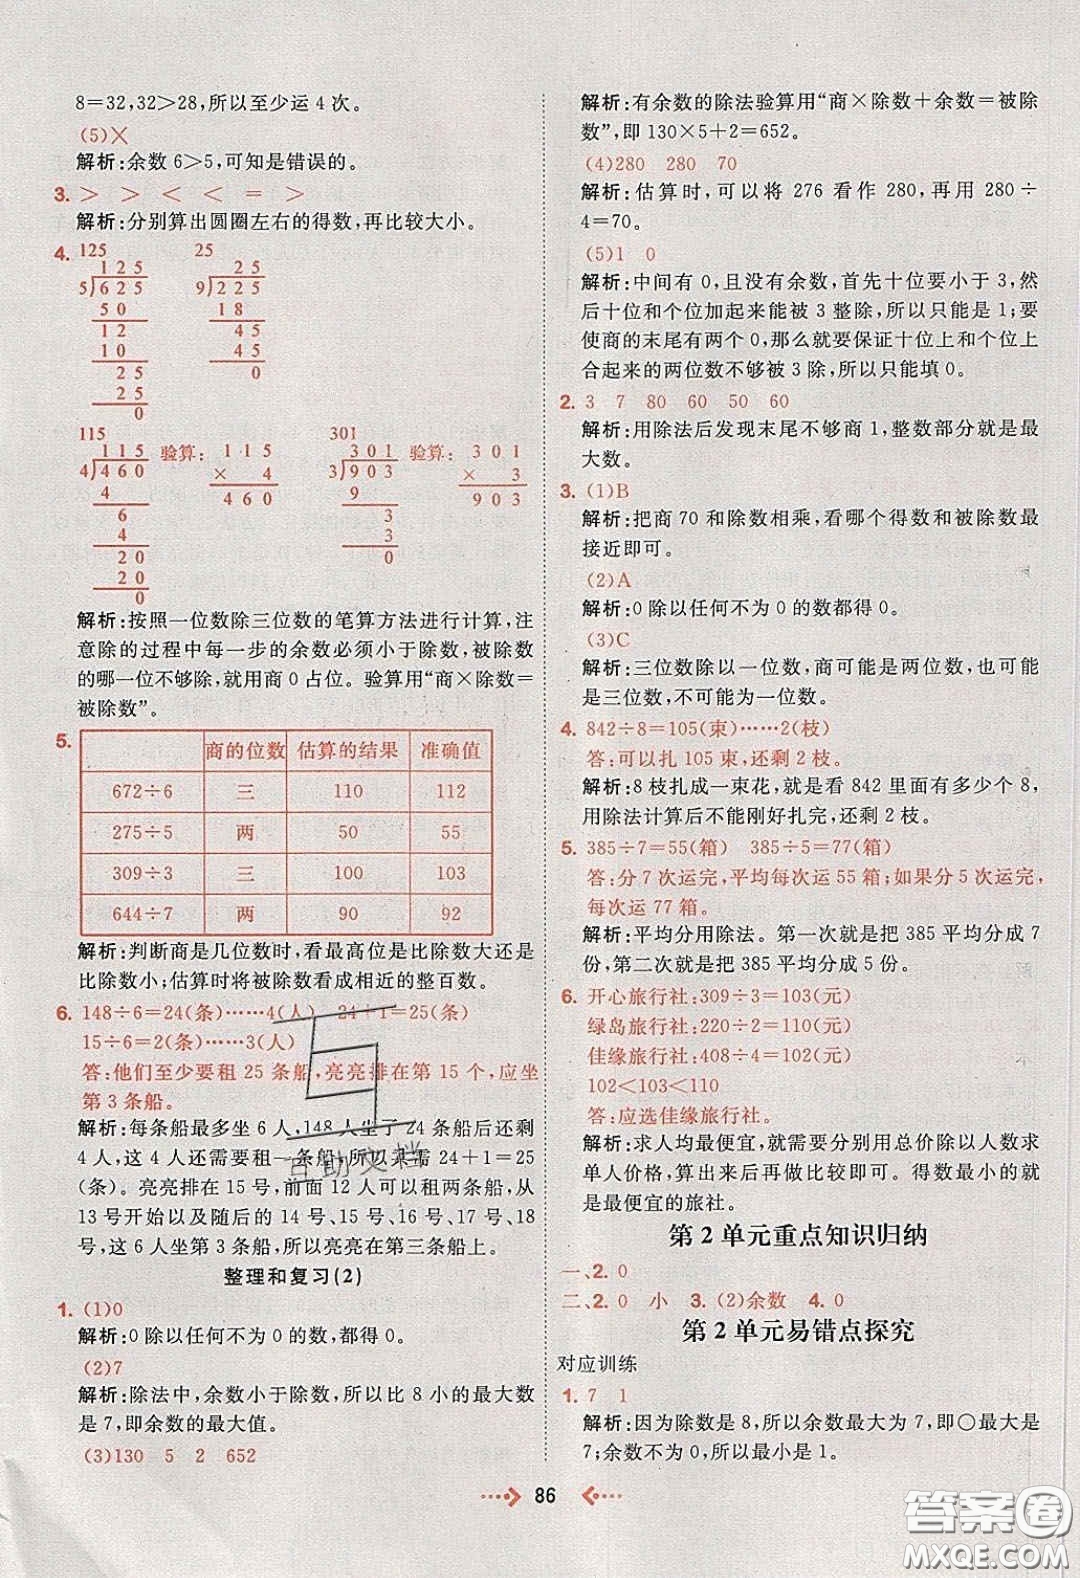 8=32,32>28,所以至少运 4 次。
(5)×
解析:余数 6>5,可知是错误的。
3. > > < < = >
解析:分别算出圆圈左右的得数,再比较大小。
4. 125 25
1 2 5 2 5
5)6 2 5 9)2 2 5
5 0 1 8
1 2 4 5
1 0 4 5
2 5 0
2 5
0
115 301
1 1 5 验算: 1 1 5 3 0 1 验算: 3 0 1
4)4 6 0 × 4 3)9 0 3 × 3
4 4 6 0 9 9 0 3
6 3
4 3
2 0 0
2 0
0
解析:按照一位数除三位数的笔算方法进行计算,注
意除的过程中每一步的余数必须小于除数,被除数
的哪一位不够除,就用商 0 占位。验算用“商×除数=
被除数”。
5. 商的位数 估算的结果 准确值
672÷6 三 110 112
275÷5 两 50 55
309÷3 三 100 103
644÷7 两 90 92
解析:判断商是几位数时,看最高位是比除数大还是
比除数小;估算时将被除数看成相近的整百数。
6. 148÷6=24(条)……4(人) 24+1=25(条)
15÷6=2(条)……3(人)
答:他们至少要租 25 条船,亮亮排在第 15 个,应坐
第 3 条船。
解析:每条船最多坐 6 人,148 人坐了 24 条船后还剩
4 人,这 4 人还需要租一条船,所以共需 24+1=25
(条)。亮亮排在 15 号,前面 12 人可以租两条船,从
13 号开始以及随后的 14 号、15 号、16 号、17 号、18
号,这 6 人坐第 3 条船,所以亮亮在第三条船上。
整理和复习(2)
1. (1)0
解析:0 除以任何不为 0 的数,都得 0。
(2)7
解析:除法中,余数小于除数,所以比 8 小的最大数
是 7,即余数的最大值。
(3)130 5 2 652
解析:有余数的除法验算用“商×除数+余数=被除
数”,即 130×5+2=652。
(4)280 280 70
解析:估算时,可以将 276 看作 280,再用 280÷
4=70。
(5)1 0
解析:中间有 0,且没有余数,首先十位要小于 3,然
后十位和个位加起来能被 3 整除,所以只能是 1;要
使商的末尾有两个 0,那么就要保证十位上和个位上
合起来的两位数不够被 3 除,所以只能填 0。
2. 3 7 80 60 50 60
解析:用除法后发现末尾不够商 1,整数部分就是最
大数。
3. (1)B
解析:把商 70 和除数相乘,看哪个得数和被除数最
接近即可。
(2)A
解析:0 除以任何不为 0 的数都得 0。
(3)C
解析:三位数除以一位数,商可能是两位数,也可能
是三位数,不可能为一位数。
4. 842÷8=105(束)……2(枝)
答:可以扎 105 束,还剩 2 枝。
解析:8 枝扎成一束花,就是看 842 里面有多少个 8,
用除法计算后不能刚好扎完,还剩 2 枝。
5. 385÷7=55(箱) 385÷5=77(箱)
答:分 7 次运完,平均每次运 55 箱;如果分 5 次运完,
每次运 77 箱。
解析:平均分用除法。第一次就是把 385 平均分成 7
份,第二次就是把 385 平均分成 5 份。
6. 开心旅行社:309÷3=103(元)
绿岛旅行社:220÷2=110(元)
佳缘旅行社:408÷4=102(元)
102<103<110
答:应选佳缘旅行社。
解析:求人均最便宜,就需要分别用总价除以人数求
单人价格,算出来后再做比较即可。得数最小的就
是最便宜的旅社。
第 2 单元重点知识归纳
一、2. 0
二、2. 0 小 3. (2)余数 4. 0
第 2 单元易错点探究
对应训练
1. 7 1
解析:因为除数是 8,所以余数最大为 7,即○最大是
7;余数不为 0,所以最小是 1。
86
互助文档
答案圈
MXQE.COM